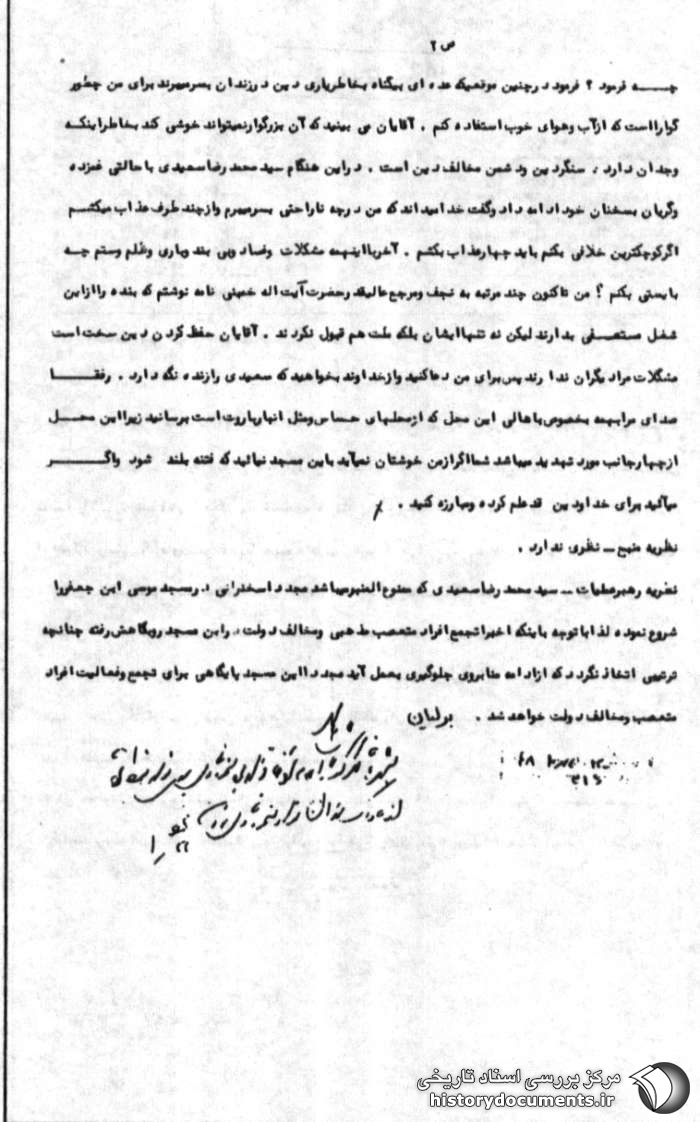 ص ۲
چه فرمود ؟ فرمود درچنین موقعیکه عده ای بیگناه بخاطریاری دین درزندان بسرمیبرند برای من چطور
گوارااست که ازآب وهوای خوب استفاده کنم . آقایان می بینید که آن بزرگوارنمیتواند خوشی کند بخاطراینکه
وجدان دارد ، سنگردین ودشمن مخالف دین است . دراین هنگام سید محمد رضاسعیدی باحالتی غمزده
وگریان بسخنان خود ادامه داد وگفت خدامیداند که من درچه ناراحتی بسرمیبرم وازچند طرف عذاب میکشم
اگرکوچکترین خلافی بکنم باید چهارعذاب بکشم . آخربااینهمه مشکلات وفساد وبی بند وباری وظلم وستم چه
بایستی بکنم ؟ من تاکنون چند مرتبه به نجف ومرجع عالیقدرحضرت آیت اله خمینی نامه نوشتم که بنده راازاین
شغل مستعفی بدارند لیکن نه تنهاایشان بلکه ملت هم قبول نکردند . آقایان حفظ کردن دین سخت است
مشکلات مرادیگران ندارند پس برای من دعاکنید وازخداوند بخواهید که سعیدی رازنده نگه دارد . رفقا
صدای مرابهمه بخصوص باهالی این محل که ازمحلهای حساس ومثل انبارباروت است برسانید زیرااین محل
ازچهارجانب مورد تهدید میباشد شمااگرازمن خوشتان نمیآید باین مسجد نیائید که فتنه بلند شود واگر
میآئید برای خدا ودین قد علم کرده ومبارزه کنید .
نظریه منبع ـ نظری ندارد .
نظریه رهبرعملیات ـ سید محمد رضاسعیدی که ممنوع المنبرمیباشد مجددا سخنرانی درمسجد موسی ابن جعفررا
شروع نموده لذا باتوجه باینکه اخیرا تجمع افراد متعصب مذهبی ومخالف دولت دراین مسجد روبکاهش رفته چنانچه
ترتیبی اتخاذ نگردد که ازادامه منابروی جلوگیری بعمل آید مجددا این مسجد پایگاهی برای تجمع وفعالیت افراد
متعصب ومخالف دولت خواهد شد . برلیان
۳۱۶
مرکز بررسی اسناد تاریخی
historydocuments.ir